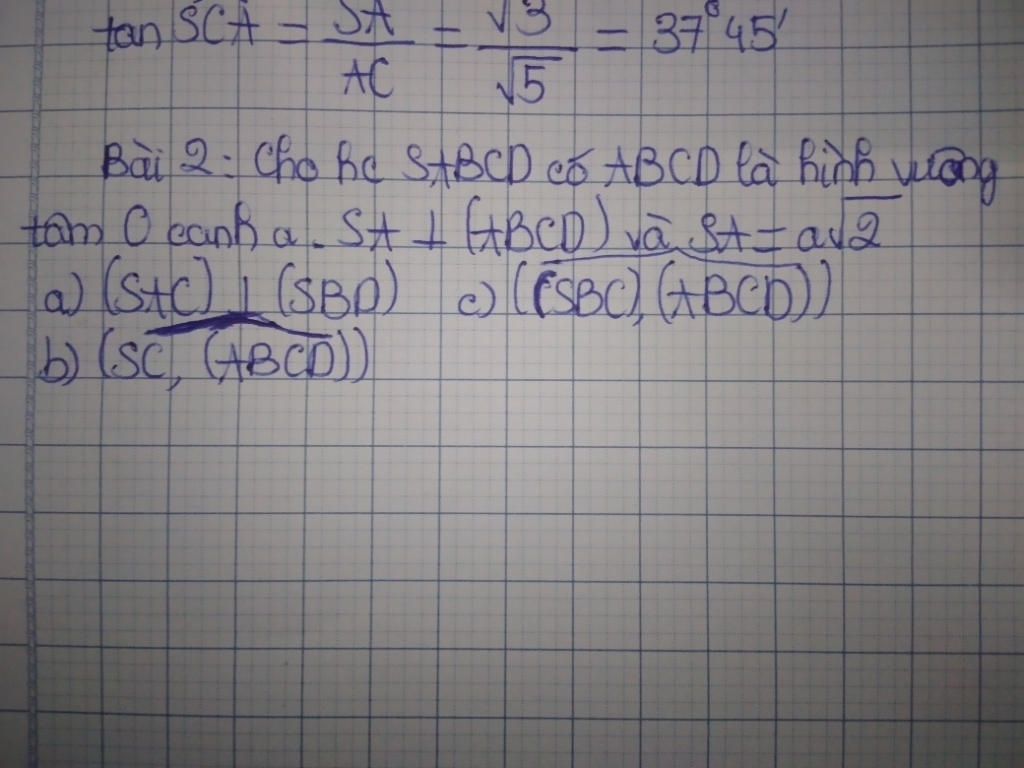 tan SCA = SA/AC = √3/√5 = 37°45'
Bài 2: Cho hc SABCD có ABCD là hình vuông
tâm O cạnh a. SA ⊥ (ABCD) và SA = a√2
a) (SAC) ⊥ (SBD) c) ((SBC), (ABCD))
b) (SC, (ABCD))